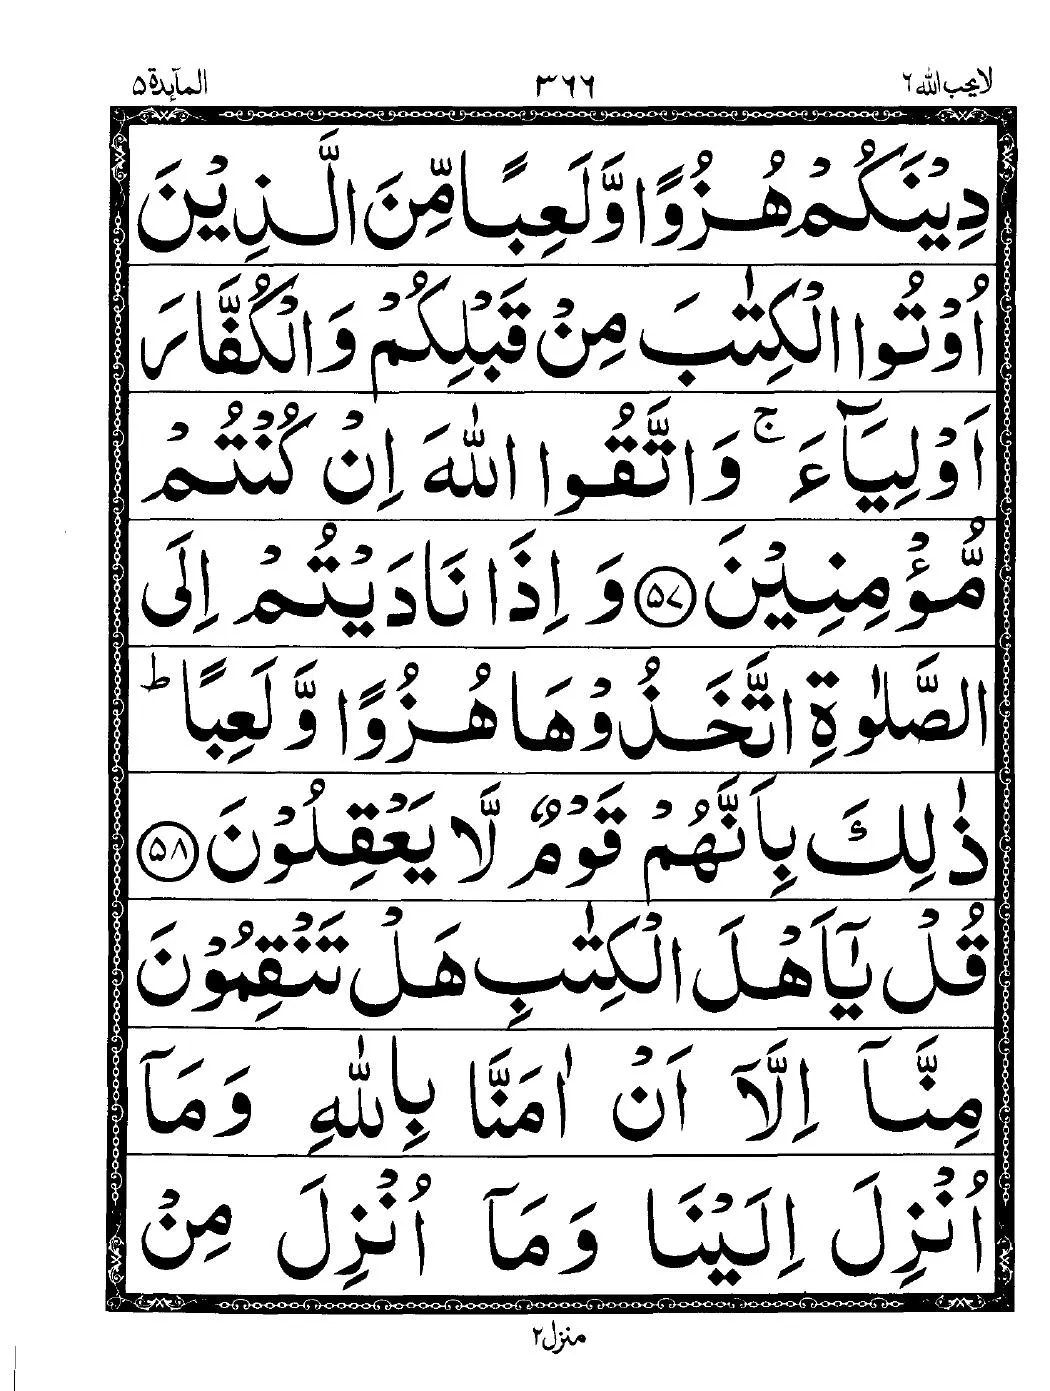 لا يحب الله ٦ ٣٦٦ المآىِٕدة ٥
دِيْنَكُمْ هُزُوًا وَّلَعِبًا مِّنَ الَّذِيْنَ
اُوْتُوا الْكِتٰبَ مِنْ قَبْلِكُمْ وَالْكُفَّارَ
اَوْلِيَآءَ ۚ وَاتَّقُوا اللّٰهَ اِنْ كُنْتُمْ
مُّؤْمِنِيْنَ ﴿۵۷﴾ وَ اِذَا نَادَيْتُمْ اِلَى
الصَّلٰوةِ اتَّخَذُوْهَا هُزُوًا وَّ لَعِبًا ؕ
ذٰلِكَ بِاَنَّهُمْ قَوْمٌ لَّا يَعْقِلُوْنَ ﴿۵۸﴾
قُلْ يٰۤاَهْلَ الْكِتٰبِ هَلْ تَنْقِمُوْنَ
مِنَّاۤ اِلَّاۤ اَنْ اٰمَنَّا بِاللّٰهِ وَمَاۤ
اُنْزِلَ اِلَيْنَا وَمَاۤ اُنْزِلَ مِنْ
منزل ٢